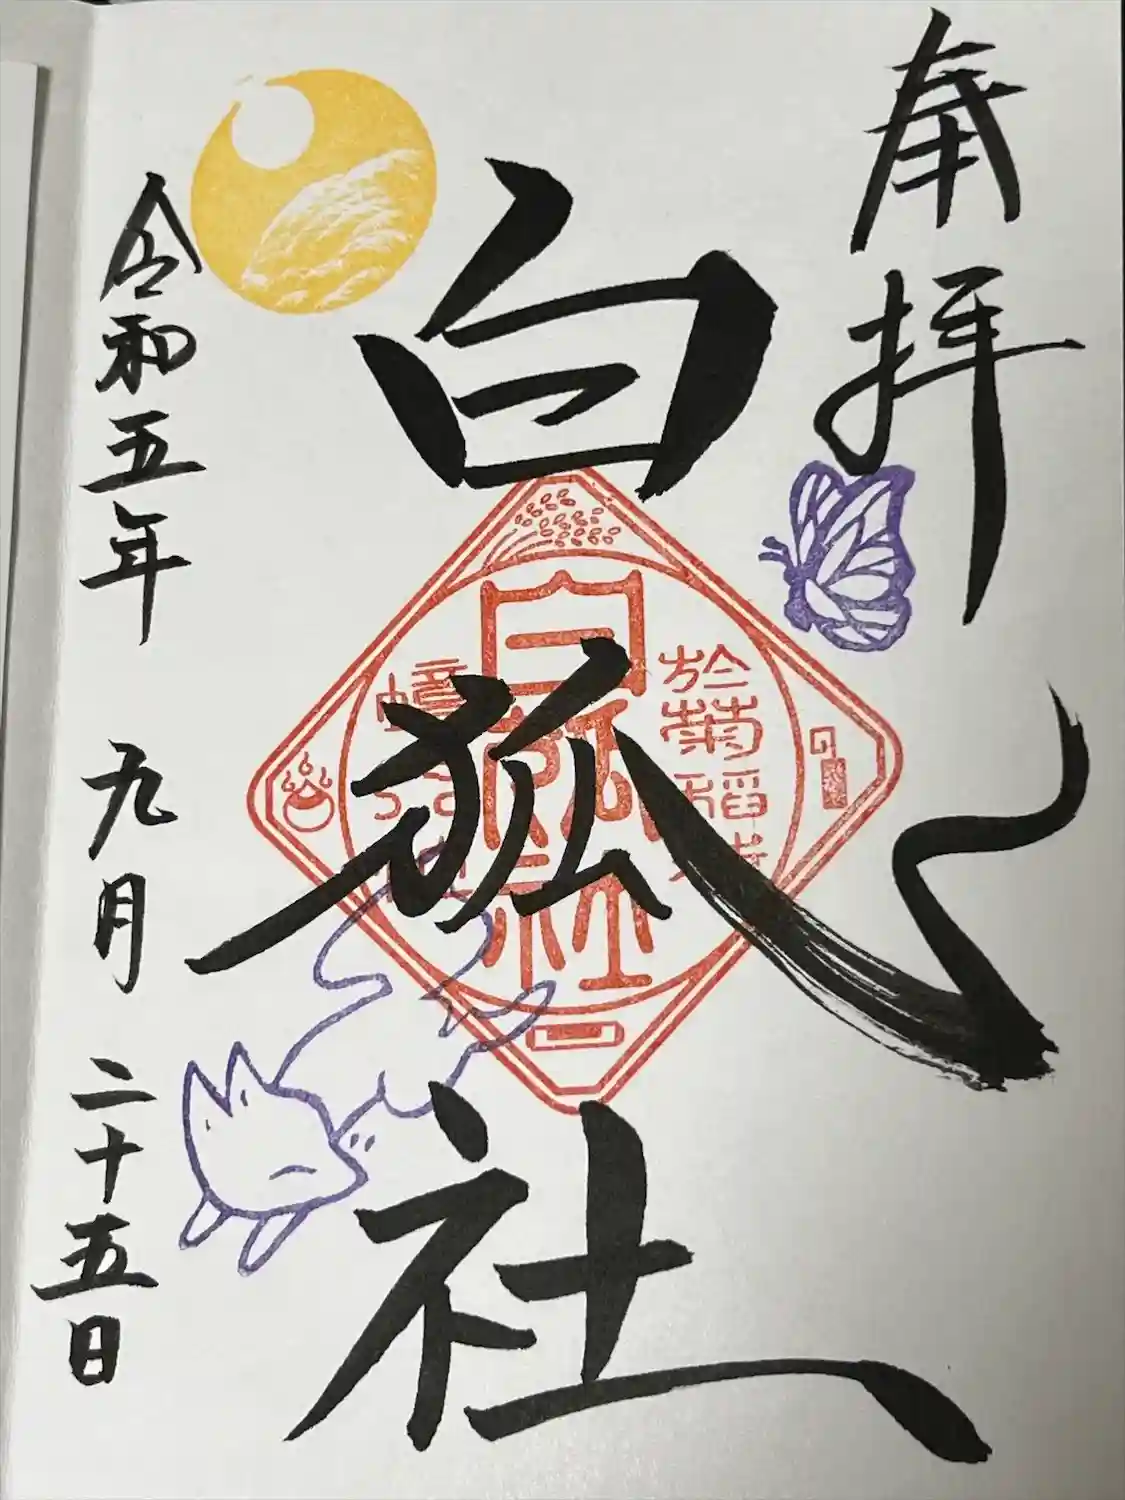 奉拝
白狐社
令和五年 九月 二十五日
白狐社